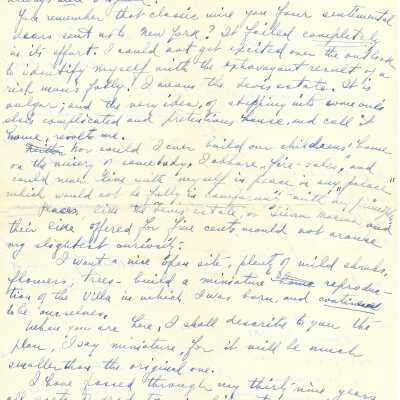 You remember that classic wire you four sentimental
dears sent us to New York? It failed completely
in its effort. I could not get excited over the outlook
to identify myself with the extravagant result of a
rich man's folly. I means the Lewis estate. It is
vulgar; and the very idea, of stepping into someone
else complicated and pretentious house, and call it
home, revolt me.
Nor could I ever build our childrens' "home"
on the misery of somebody. I abhore "fire-sales", and
could never live with myself in peace in any "palace"
which would not be fully in "comparison" with my principles
Places, like the Lewis estate, or Sierra Madre and
their like offered for five cents would not arouse
my slightest curiosity.
I want a nice open site, plenty of wild shrubs,
flowers, trees - build a miniature "home" reproduc-
tion of the Villa in which I was born, and continued
to be ourselves.
When you are here, I shall describe to you the
plan, I say miniature, for it will be much
smaller than the original one.
I have passed through my thirty-nine years